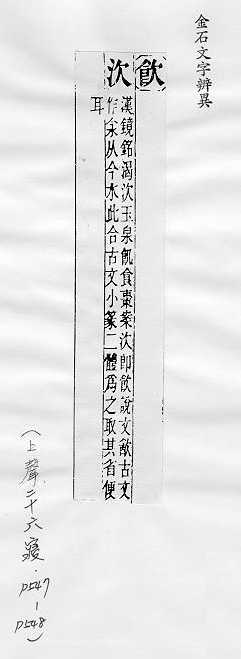 金石文字辨異
飮
次
漢鏡銘渴次玉泉飢食棗案次卽飮說文㱃古文
作㱃从今水此合古文小篆二體爲之取其省便
耳
(上聲二十六寑.P547-P548)